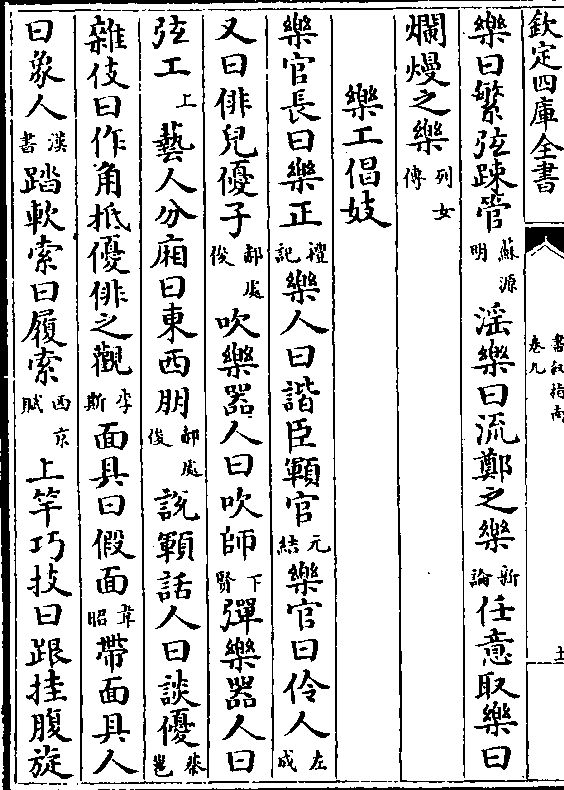 欽定四庫全書
書叙指南
卷九
士
樂曰繁弦踈管蘇源明淫樂曰流鄭之樂新論任意取樂曰
爛熳之樂列女傳
樂工倡妓
樂官長曰樂正禮記樂人曰諧臣顐官元結樂官曰伶人左成
又曰俳兒優子郝處俊吹樂器人曰吹師下賢彈樂器人曰
弦工上藝人分廂曰東西朋郝處俊說顐話人曰談優蔡邕
雜伎曰作角抵優俳之觀李斯面具曰假面韋昭帶面具人
曰象人漢書踏軟索曰履索西京賦上竿巧技曰跟挂腹旋